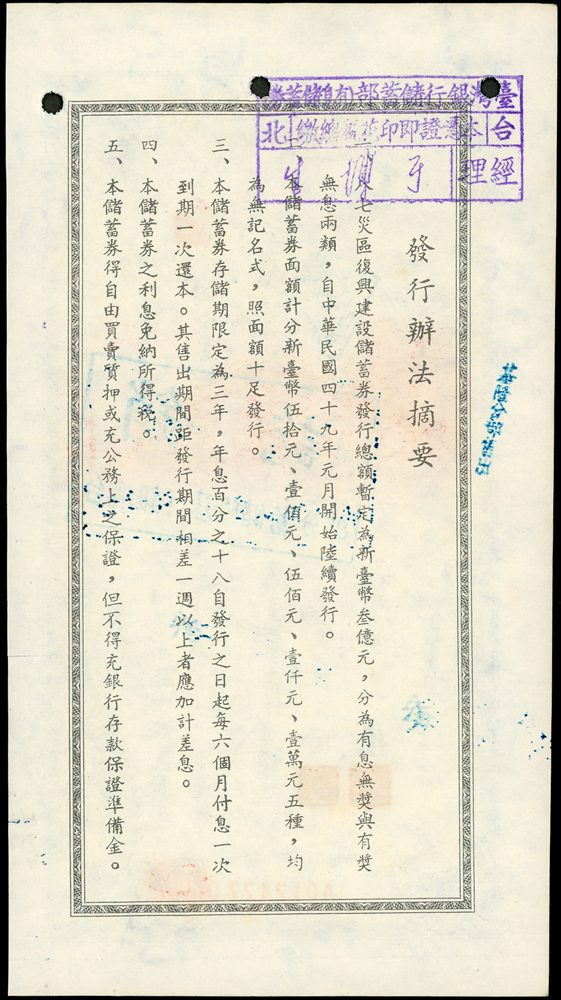 發行辦法摘要
八七災區復興建設儲蓄券發行總額暫定為新臺幣叁億元，分為有息無獎與有獎
無息兩類，自中華民國四十九年元月開始陸續發行。
本儲蓄券面額計分新臺幣伍拾元、壹佰元、伍佰元、壹仟元、壹萬元五種，均
為無記名式，照面額十足發行。
三、本儲蓄券存儲期限定為三年，年息百分之十八自發行之日起每六個月付息一次
到期一次還本。其售出期間距發行期間相差一週以上者應加計差息。
四、本儲蓄券之利息免納所得稅。
五、本儲蓄券得自由買賣質押或充公務上之保證，但不得充銀行存款保證準備金。
臺灣銀行儲蓄部
台北
經理